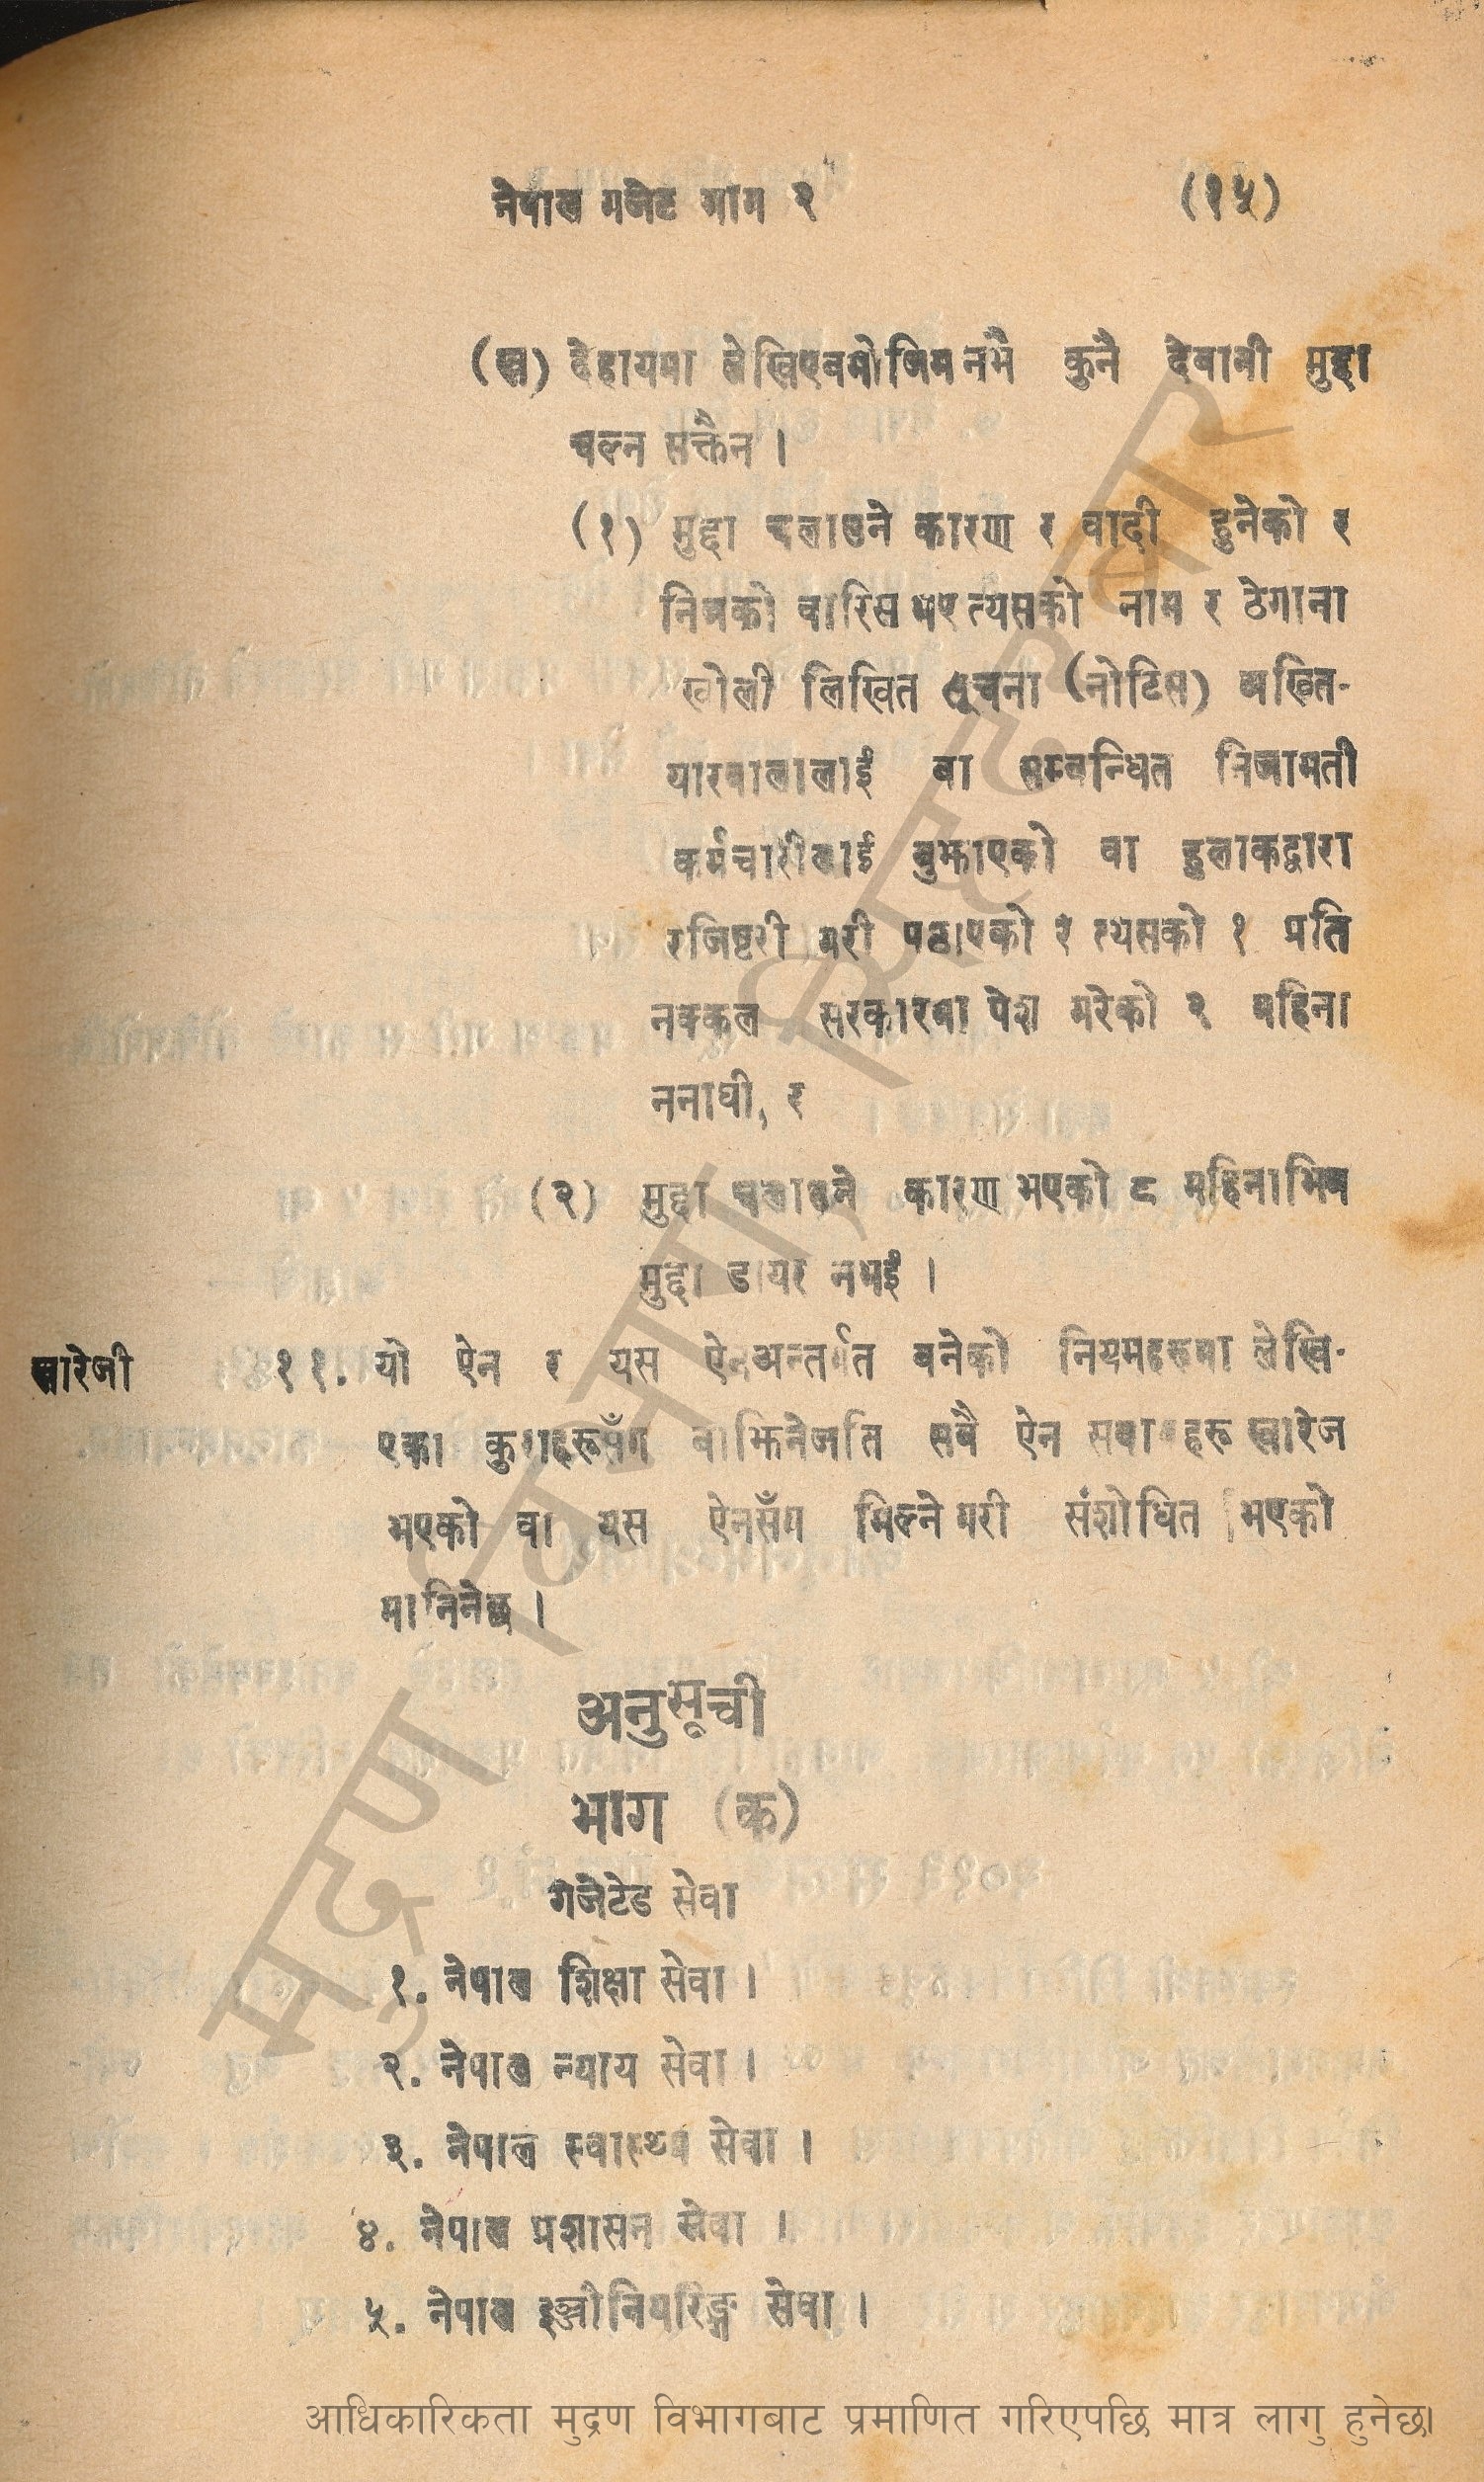 नेपाल गजेट भाग २ (१५)
(ख) देहायमा लेखिएबमोजिम नभै कुनै देवानी मुद्दा
चल्न सक्तैन ।
(१) मुद्दा चलाउने कारण र वादी हुनेको र
निजको वारिस भए त्यसको नाम र ठेगाना
खोली लिखित सूचना (नोटिस) अख्ति-
यारवालालाई वा सम्बन्धित निजामती
कर्मचारीलाई बुझाएको वा हुलाकद्वारा
रजिष्टरी गरी पठाएको र त्यसको १ प्रति
नक्कल सरकारमा पेश गरेको २ महिना
ननाघी, र
(२) मुद्दा चलाउने कारण भएको ८ महिनाभित्र
मुद्दा डायर नभई ।
खारेजी ११. यो ऐन र यस ऐनअन्तर्गत बनेको नियमहरूमा लेखि-
एका कुराहरूसँग बाझिनेजति सबै ऐन सवालहरू खारेज
भएको वा यस ऐनसँग मिल्ने गरी संशोधित भएको
मानिनेछ ।
अनुसूची
भाग (क)
गजेटेड सेवा
१. नेपाल शिक्षा सेवा ।
२. नेपाल न्याय सेवा ।
३. नेपाल स्वास्थ्य सेवा ।
४. नेपाल प्रशासन सेवा ।
५. नेपाल इञ्जीनियरिङ्ग सेवा ।
मुद्रण विभाग,
आधिकारिकता मुद्रण विभागबाट प्रमाणित गरिएपछि मात्र लागु हुनेछ।